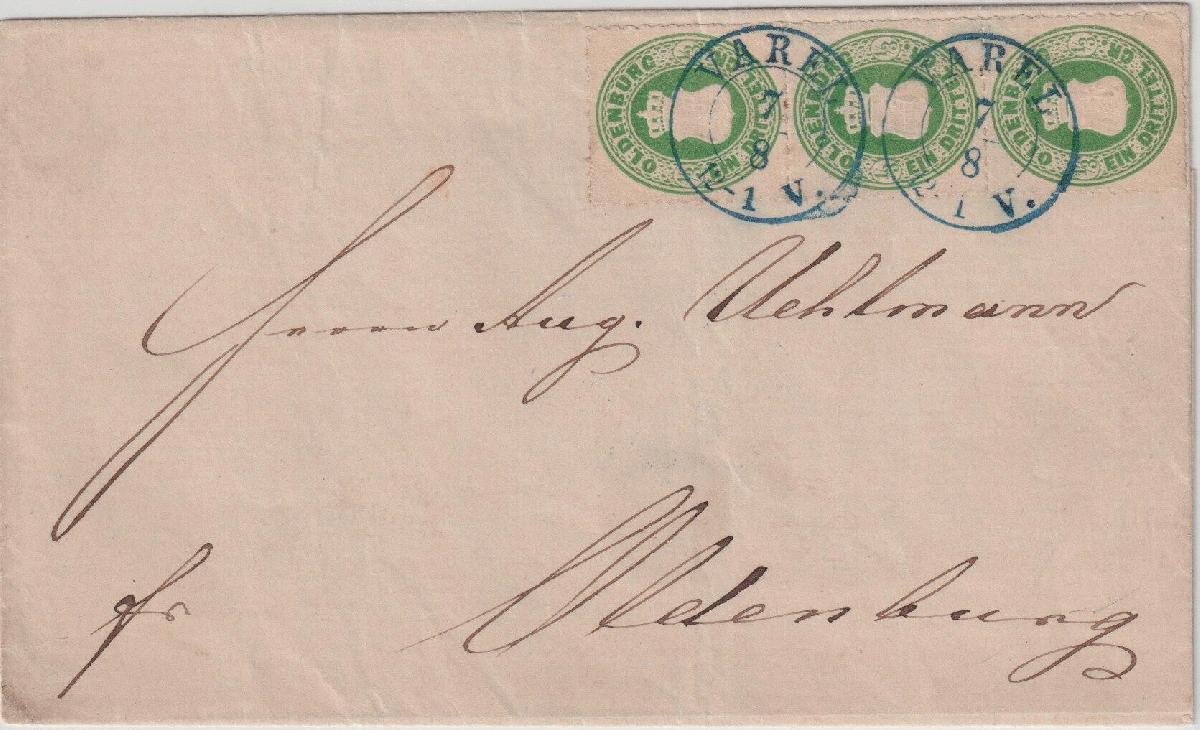 OLDENBURG EIN DRITTEL GR.
OLDENBURG EIN DRITTEL GR.
OLDENBURG EIN DRITTEL GR.
VAREL
7
8
1 V.
VAREL
7
8
1 V.
Herrn Aug. Uehlmann
fr
Oldenburg